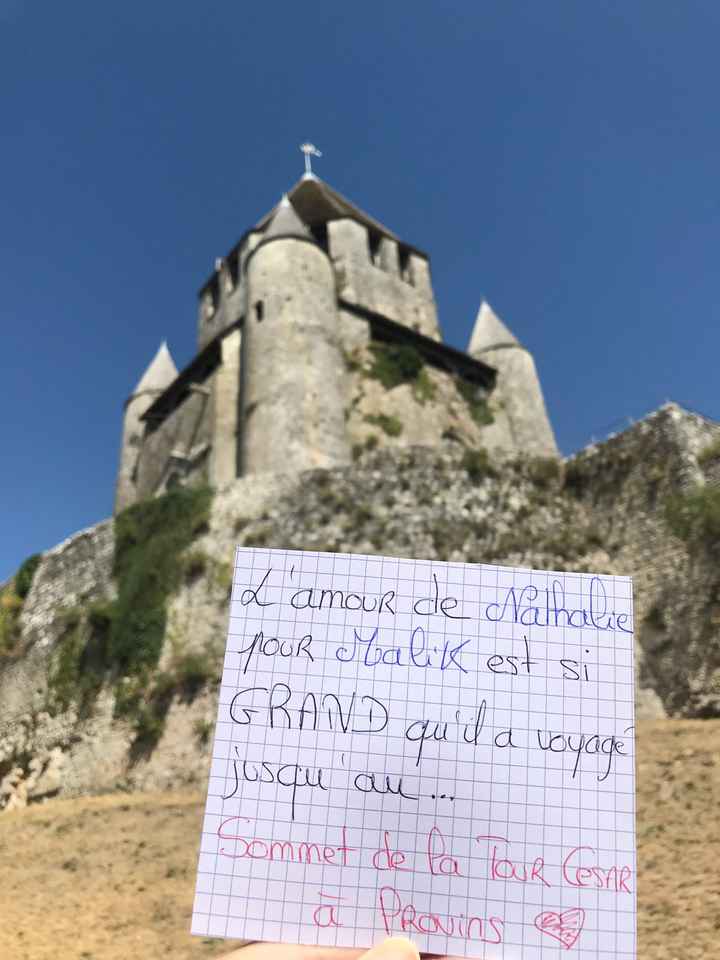 L'amour de Nathalie
pour Malik est si
GRAND qu'il a voyagé
jusqu'au...
Sommet de la Tour Cesar
à Provins